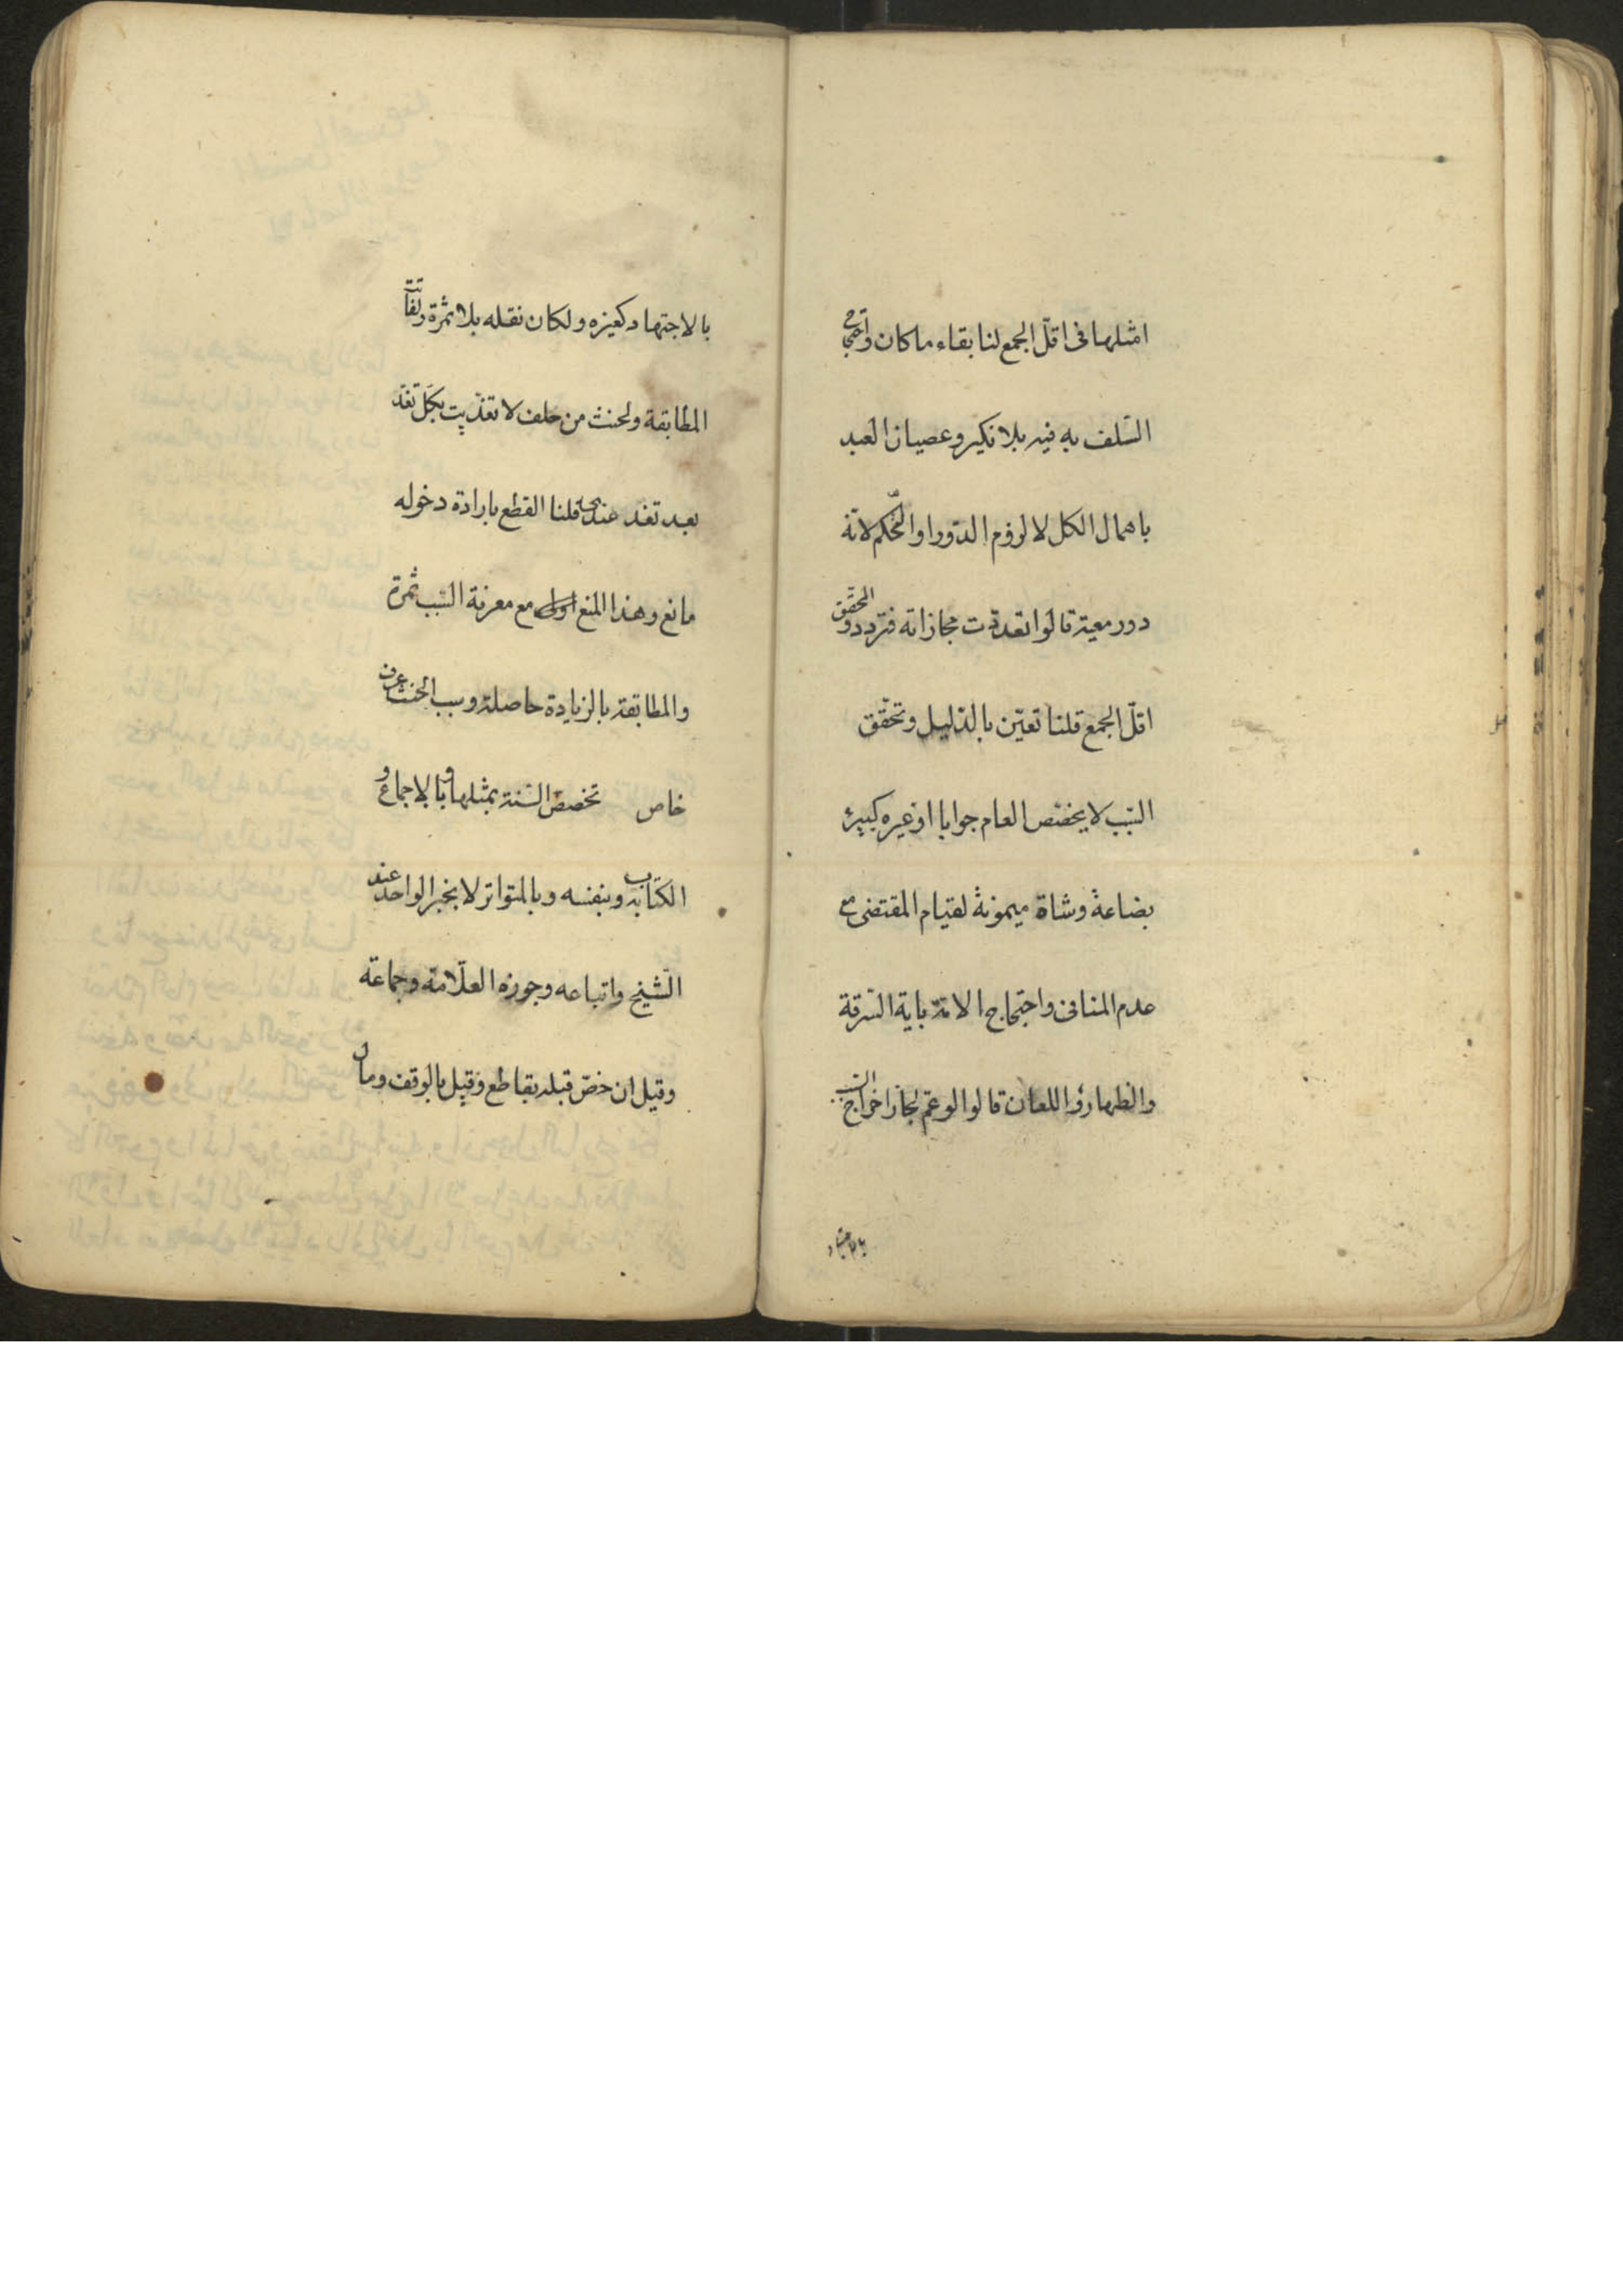 امثلها فى اقلّ الجمع لنا بقاء ماكان واحتجاج
السّلف به فيه بلا نكير وعصيان العبد
باهمال الكل لا لزوم الدّور او التّحكم لانّه
دور معية قالوا تعدّدت مجازاته فتردد و المحقق
اقلّ الجمع قلنا تعيّن بالدّليل وتحقّق
السّبب لا يخصّص العام جوابا او غيره كبئر
بضاعة وشاة ميمونة لقيام المقتضى مع
عدم المنافى واحتجاج الامّة باية السّرقة
والظهار واللعان قالوا لو عمّ لجاز اخراج السّبب
بالاجتهاد كغيره ولكان نقله بلا ثمرة ولفاتت
المطابقة ولحنث من حلف لا تغدّيت بكلّ تغدّ
بعد تغد عندى قلنا القطع بارادة دخوله
مانع وهذا المنع اولى مع معرفة السّبب ثمرة
والمطابقة بالزيادة حاصلة وسبب الحنث عرف
خاص تخصص السّنة بمثلها وبالاجماع و
الكتاب به وبنفسه وبالمتواتر لا بخبر الواحد عند
الشّيخ واتباعه وجوزه العلّامة وجماعة
وقيل ان خصّ قبله بقاطع وقيل بالوقف ومال